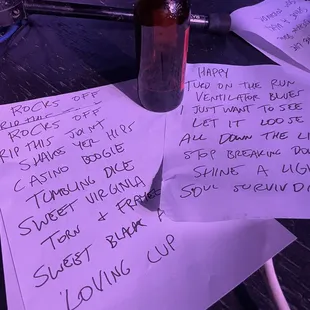 ROCKS OFF
RIP THIS
ROCKS OFF
RIP THIS JOINT
SHAKE YER HIPS
CASINO BOOGIE
TUMBLING DICE
SWEET VIRGINIA
TORN & FRAYED
SWEET BLACK A
LOVING CUP
HAPPY
TURD ON THE RUN
VENTILATOR BLUES
I JUST WANT TO SEE
LET IT LOOSE
ALL DOWN THE LI
STOP BREAKING DOW
SHINE A LIGH
SOUL SURVIVO